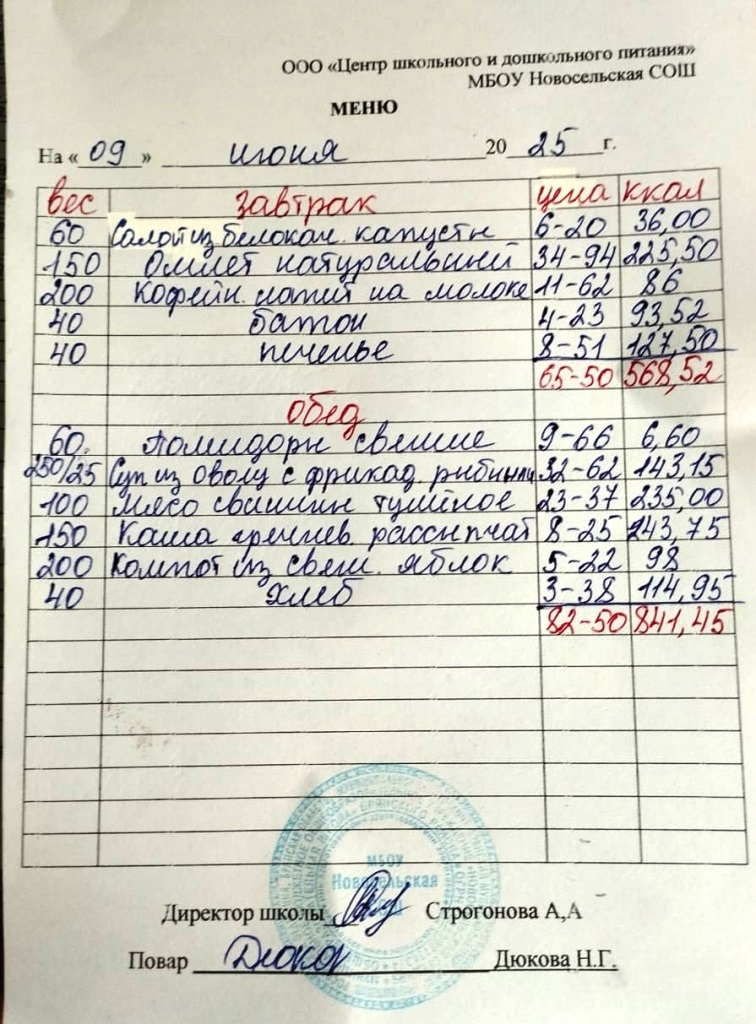 ООО «Центр школьного и дошкольного питания»
МБОУ Новосельская СОШ
МЕНЮ
На « 09 » июня 20 25 г.
вес завтрак цена ккал
60 Салат из белокач. капусты 6-20 36,00
150 Омлет натуральный 34-94 225,50
200 Кофейн. напит на молоке 11-62 86
40 батон 4-23 93,52
40 печенье 8-51 127,50
65-50 568,52
обед
60. Помидоры свежие 9-66 6,60
250/25 Суп из овощ с фрикад. рыбными 32-62 143,15
100 мясо свинин тушёное 23-37 235,00
150 Каша гречнев. рассыпчат 8-25 243,75
200 Компот из свеж. яблок 5-22 98
40 хлеб 3-38 114,95
82-50 841,45
МБОУ
Новосельская
Директор школы Строгонова А,А
Повар Дюкова Н.Г.